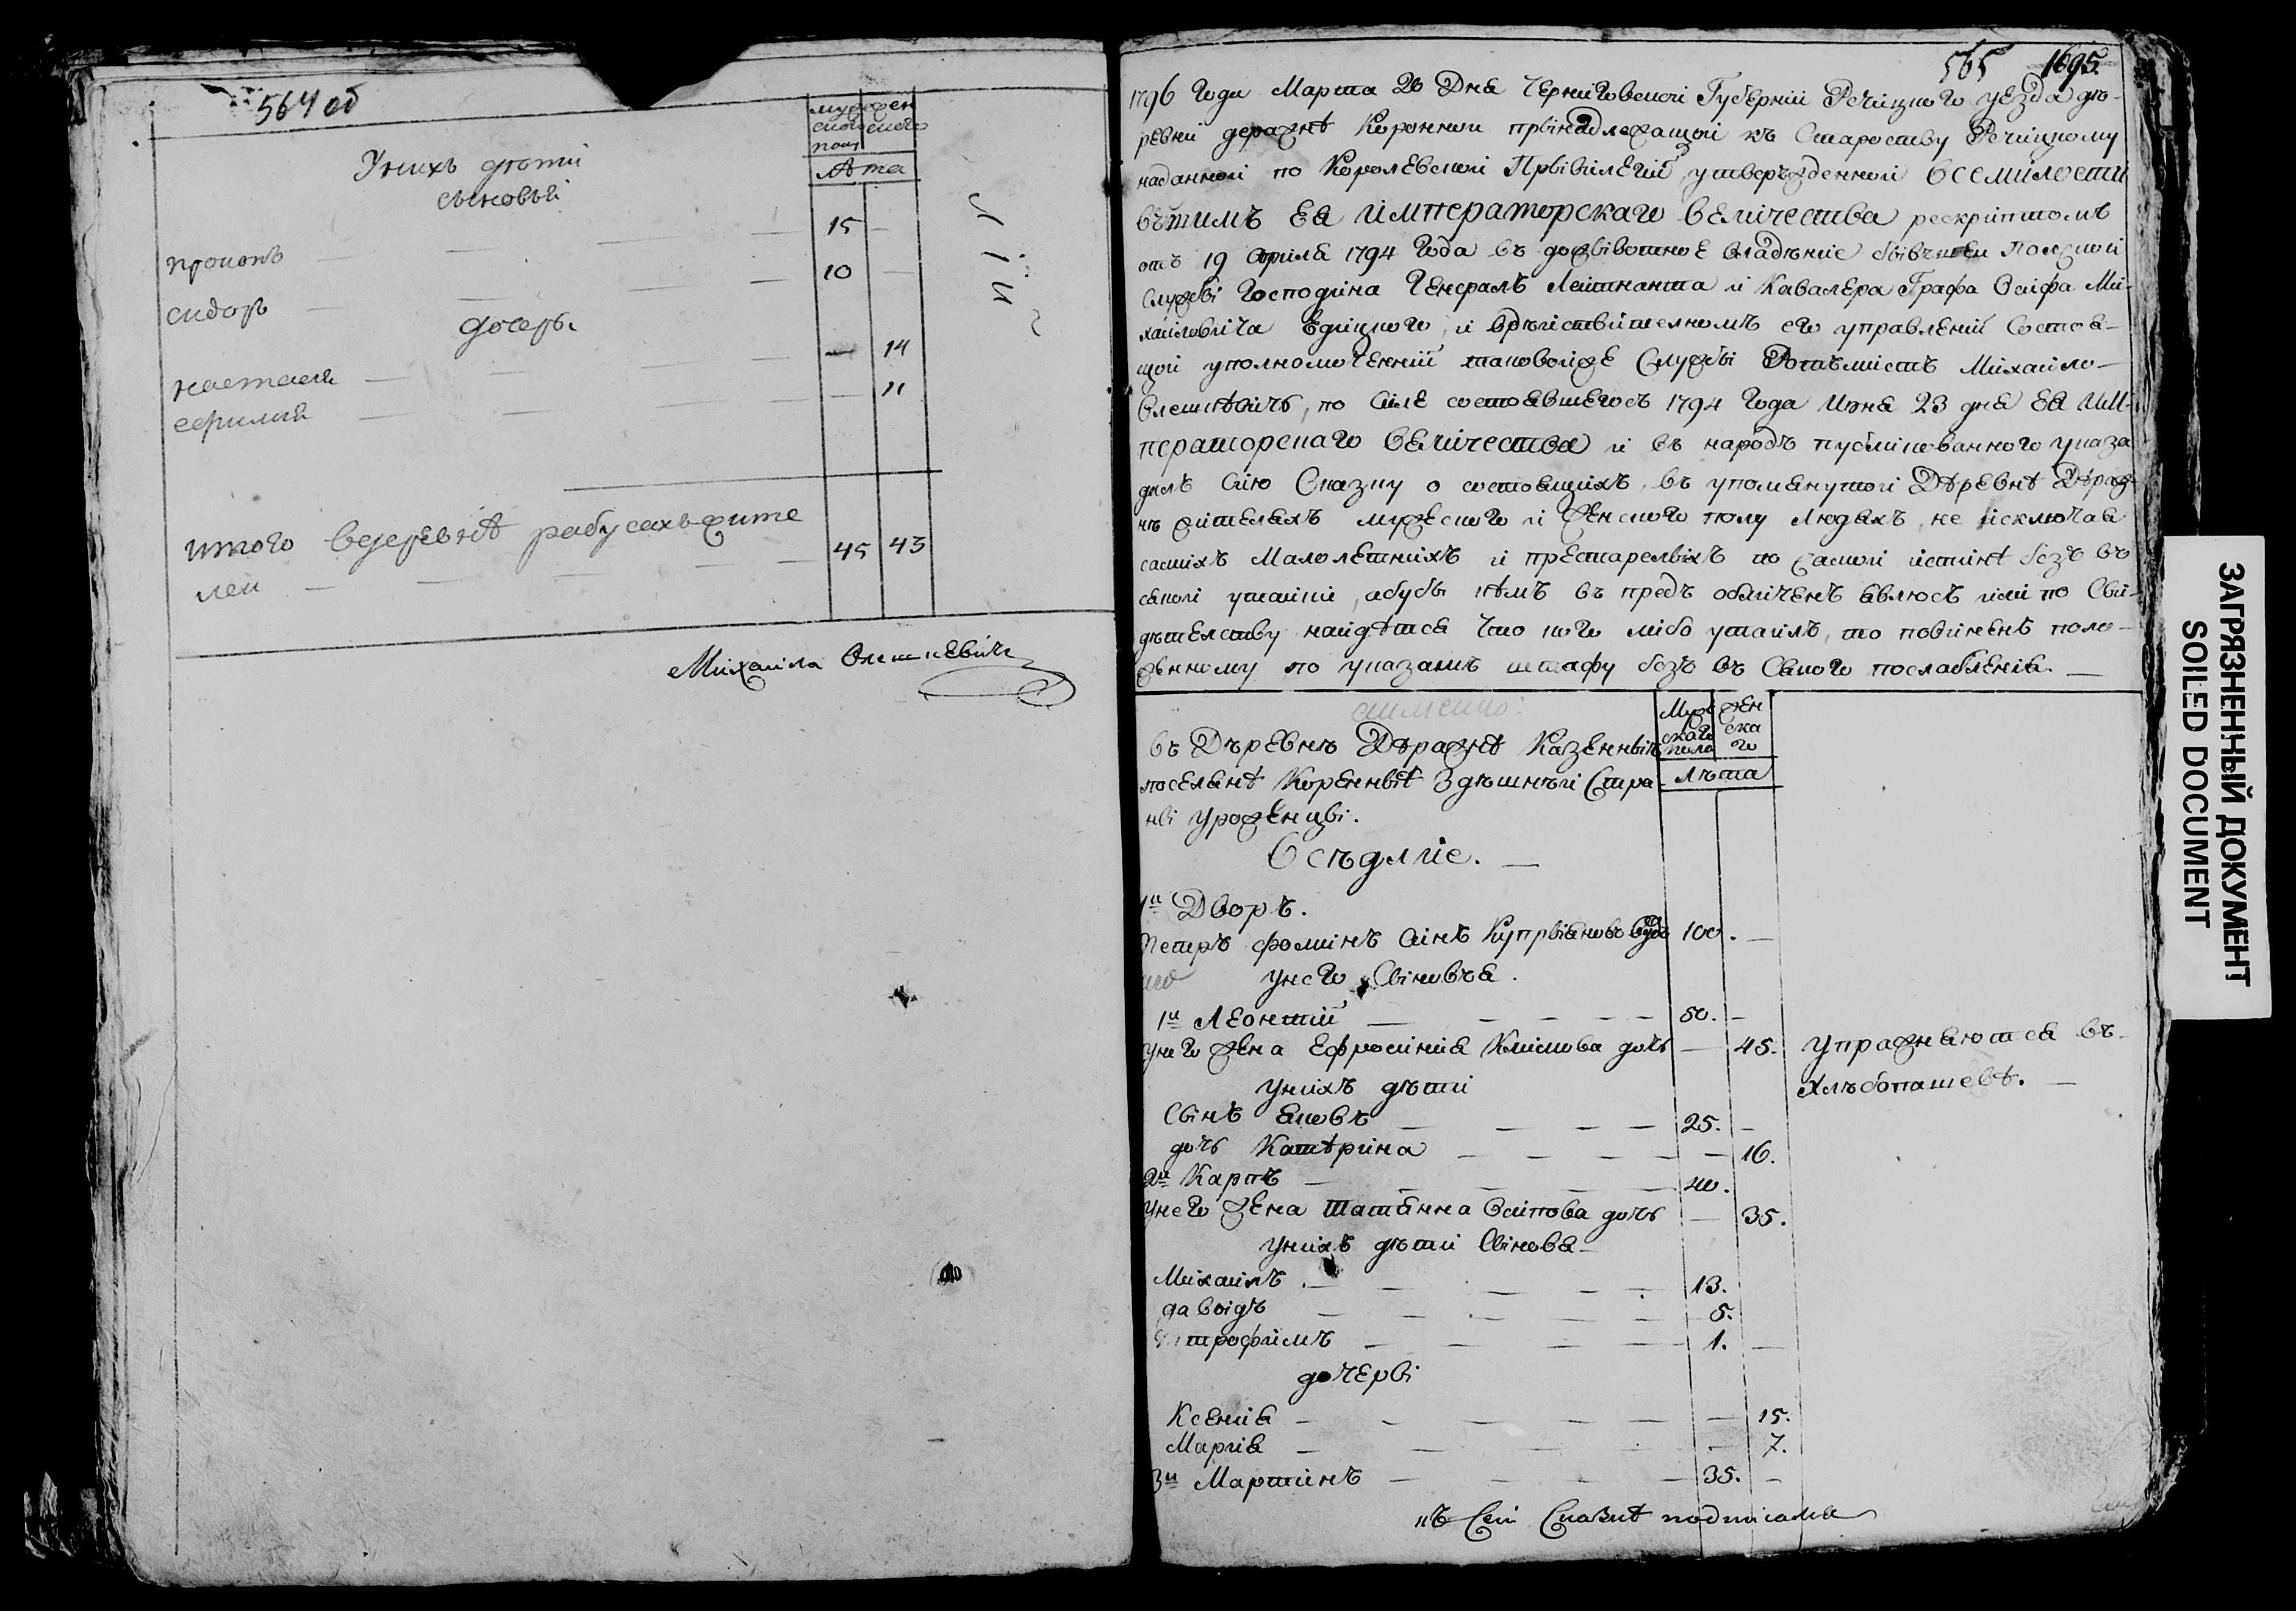 564 об
муж жен
ского ского
полу
Лѣта
Унихъ дѣти
сыновья
прокопъ — 15 —
сидоръ — 10 —
дочеръ
настася — — 14
ефимия — — 11
итого вдеревнѣ рабусахъ жите
лей — 45 43
Михаила Олешкевичь
565 1695
1796 Года Марта 20 Дня Черниговской Губернии Речицкого уезда де-
ревни деражнѣ Коронной принадлежащой къ Староству Речицкому
наданной по Королевской Привилегии, утвержденной всемилости
вѣтимъ ея императорскаго величества рескриптомъ
отъ 19 априля 1794 Года въ доживотное владѣние бывшей Полской
службы Господина Генералъ Лейтнанта и Кавалера Графа Осифа Ми-
хайловича , и вдѣйствителномъ его управлении состоя-
щой уполномоченний таковойже службы Ротъмистъ Михайло
Олешкѣвичъ, по силе состоявшегось 1794 Года Июня 23 дня ея им-
ператорскаго величества и въ народъ публикованного указа
далъ сию Сказку о состоящихъ въ упомянутой Дѣревнѣ Дѣраж-
нѣ жителяхъ мужеского и женского полу людяхъ, не исключая
самихъ Малолетнихъ и престарелыхъ по самой истинѣ безъ въ
сякой утайки, абубы кѣмъ въ предъ обличенъ явлюсь или по Сви-
дѣтелству найдѣтся что кого либо утаилъ, то повиненъ поло-
женному по указамъ штафу безъ въ сякого послабления. —
аименно:
Муже ского пола жен ска го
Лѣта
въ Дѣревнѣ Дѣражнѣ Казенныхъ
поселянѣ Коренныѣ Здѣшнѣй Стра-
ны уроженцы.
Осѣдлие. —
1й Дворъ.
Петръ фоминъ синъ Куприяновъ 100. —
унего Сыновъя.
1й Леонтий — 50. —
унего жена Ефросиния Климова дочь — 45. Упражняются въ
унихъ дѣти хлѣбопашевѣ. —
Сынъ Яковъ — 25. —
дочь Катѣрина — — 16.
2й Карпъ — 40.
унего жена Татянна Осипова дочь — 35.
унихъ дѣти Сынова —
Михаилъ — 13.
давыдъ — 5.
трофимъ — 1. —
дочеры
Ксения — — 15.
Мария — — 7.
3й Мартинъ — 35. —
къ Сей Сказкѣ подписался
ЗАГРЯЗНЕННЫЙ ДОКУМЕНТ
SOILED DOCUMENT